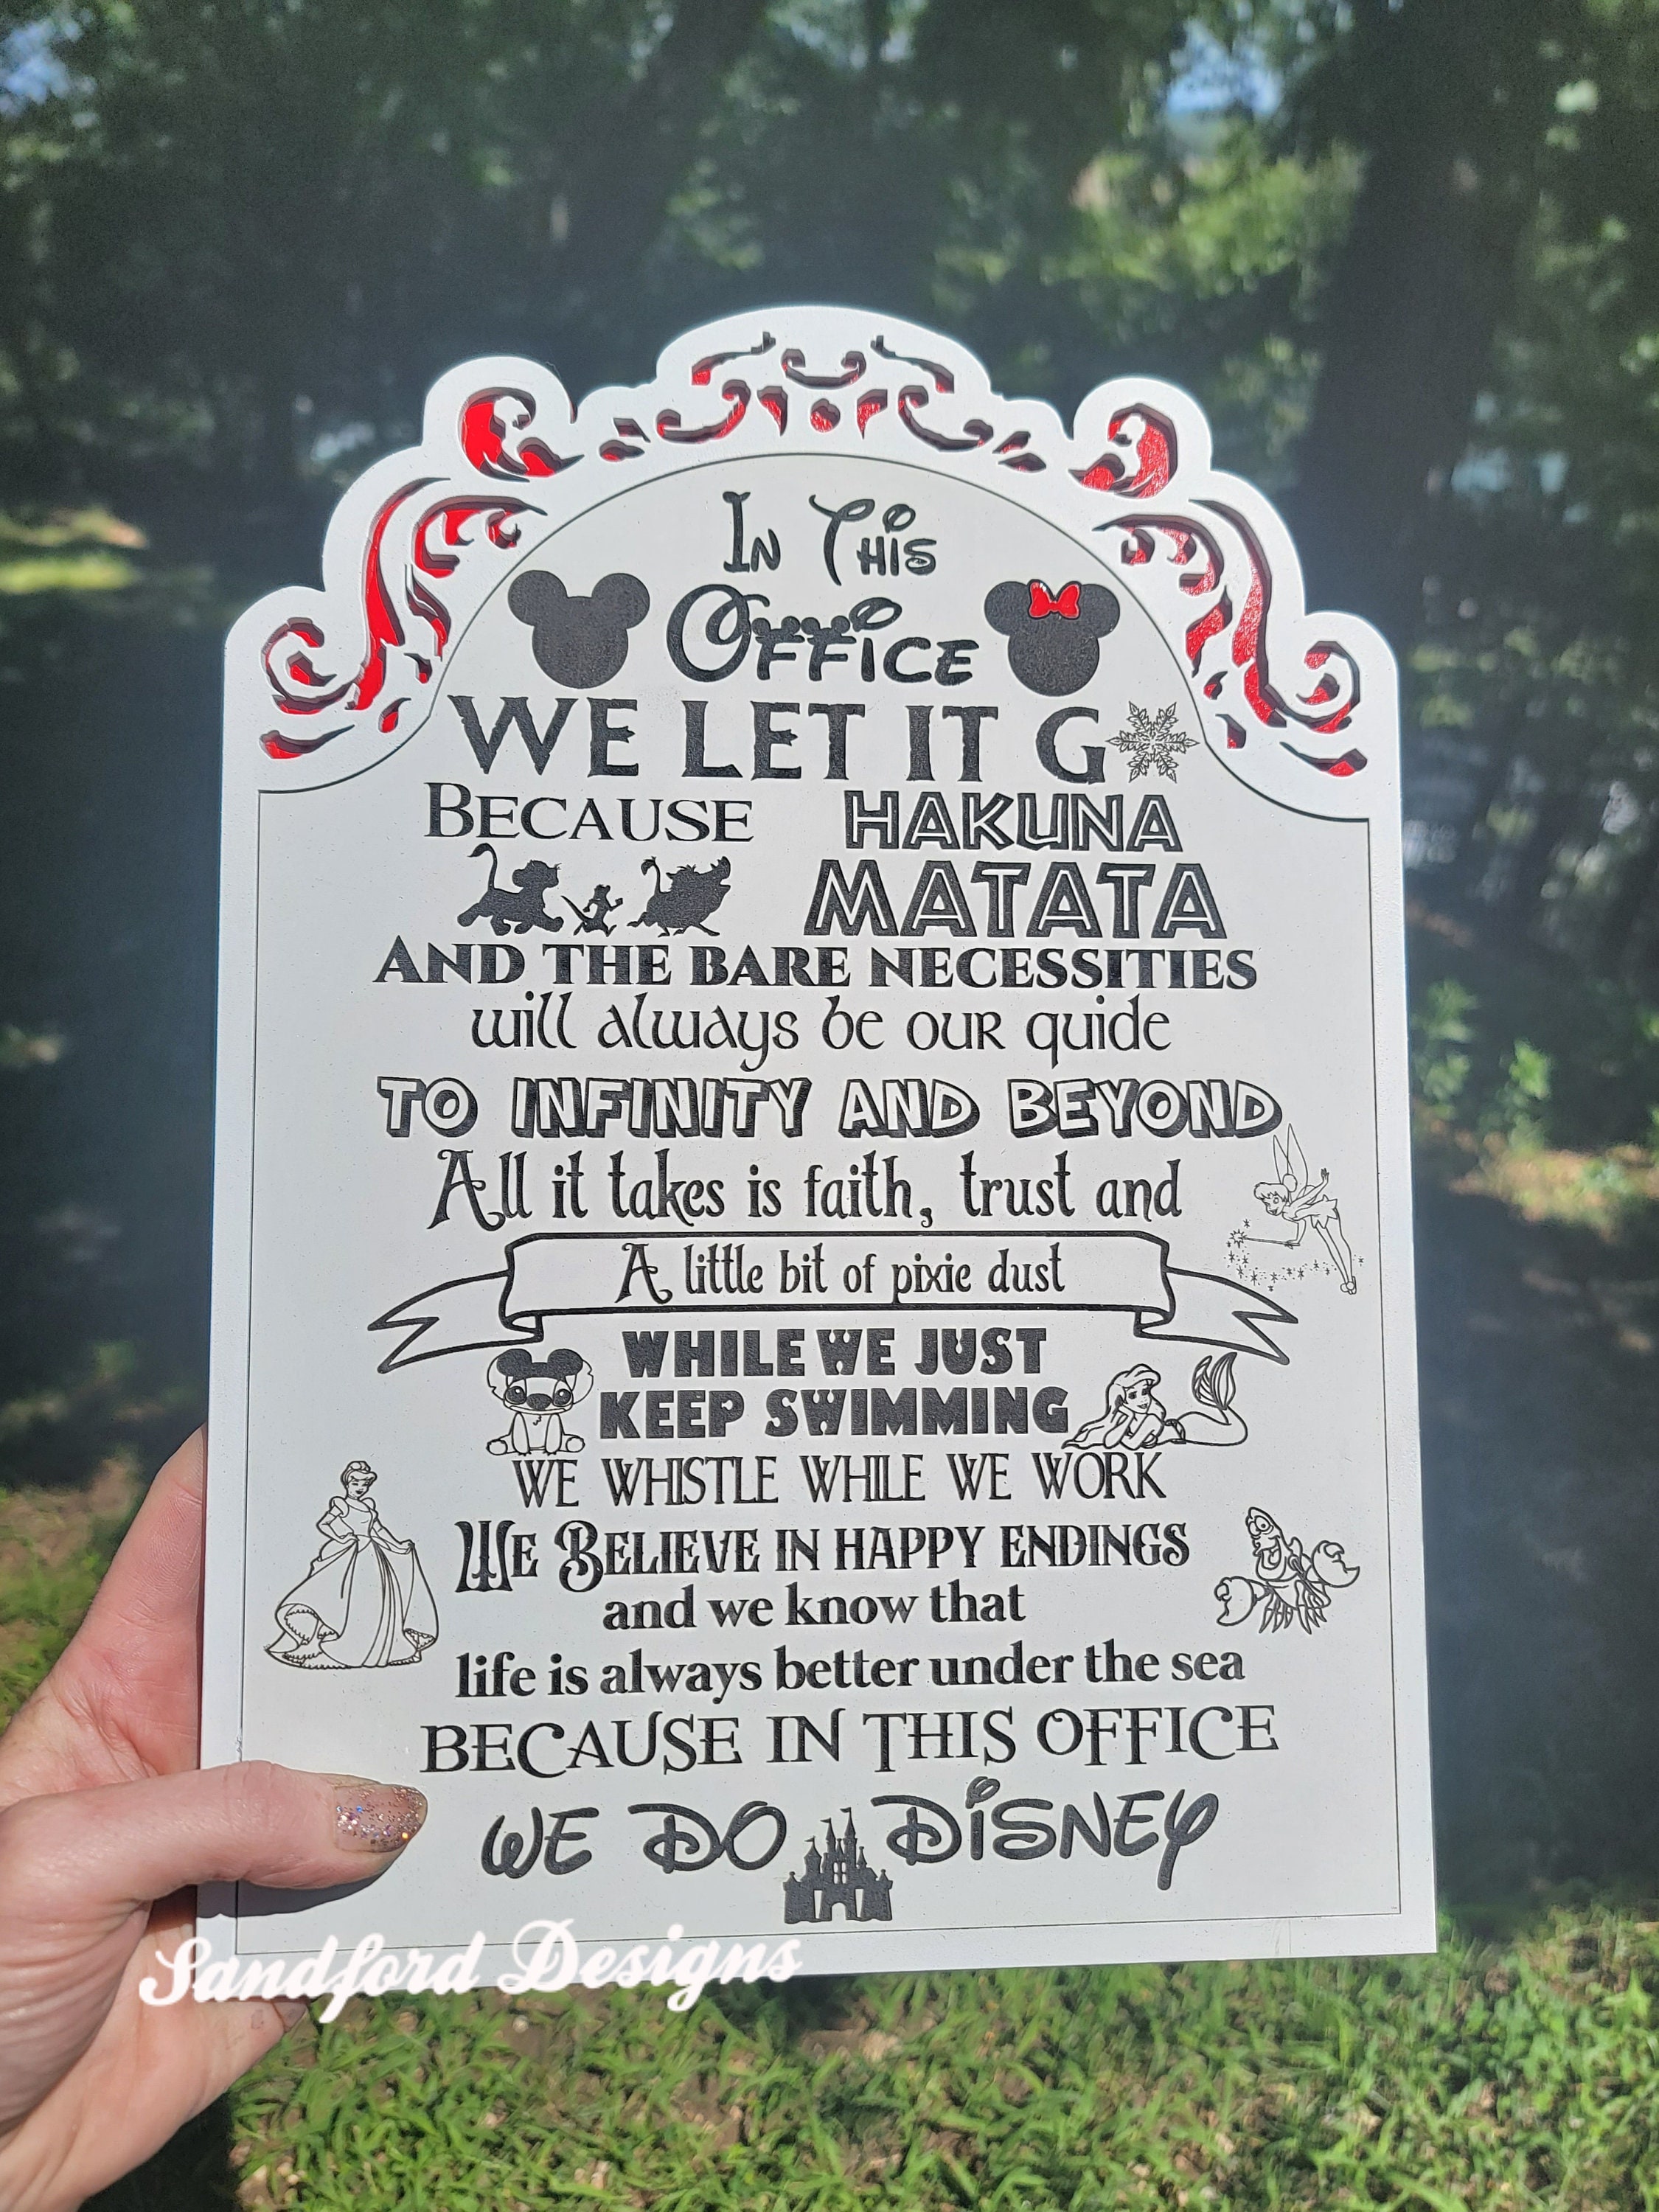 In This
Office
WE LET IT G
BECAUSE HAKUNA
MATATA
AND THE BARE NECESSITIES
will always be our guide
TO INFINITY AND BEYOND
All it takes is faith, trust and
A little bit of pixie dust
WHILE WE JUST
KEEP SWIMMING
WE WHISTLE WHILE WE WORK
WE BELIEVE IN HAPPY ENDINGS
and we know that
life is always better under the sea
BECAUSE IN THIS OFFICE
WE DO DiSNEY
Sandford Designs